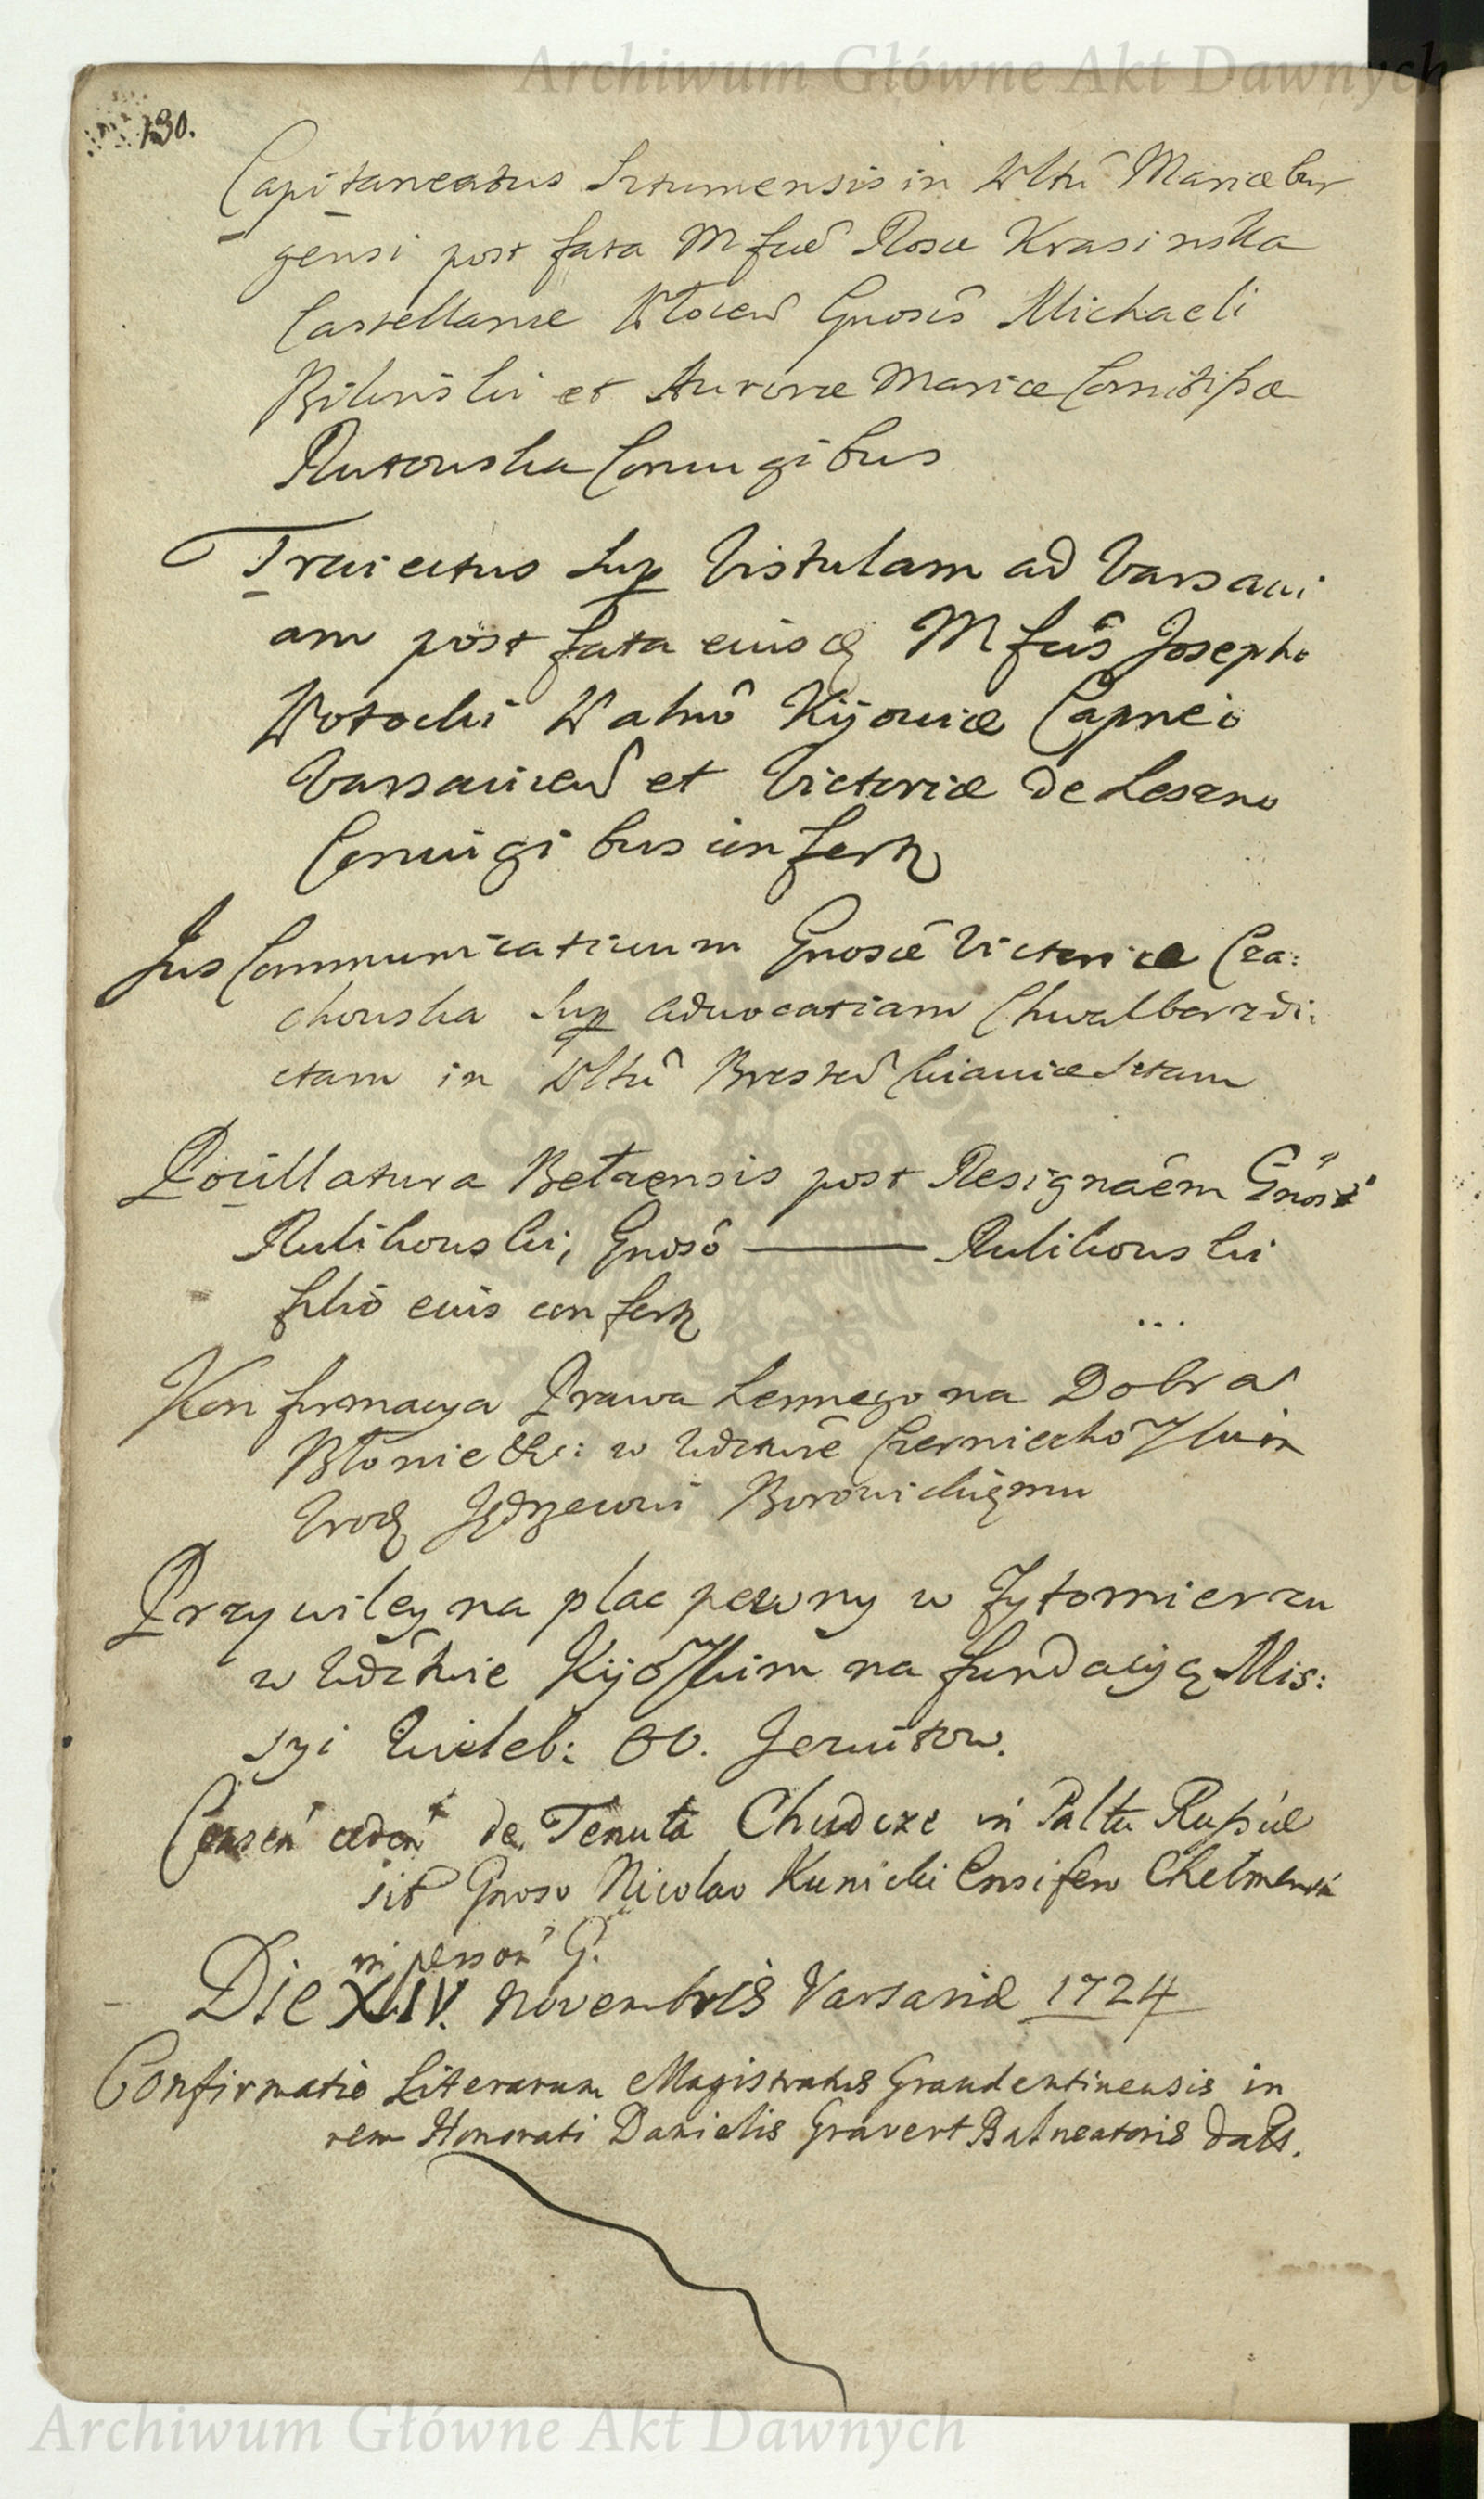 Archiwum Główne Akt Dawnych
130.
Capitaneatus Sztumensis in Wltû Mariæbur
gensi post fata Mfcæ Rosæ Krasinska
Castellanæ Płocen Gnosis Michaeli
Bilinski et Auroræ Mariæ Comitissæ
Rutouska Coniugibus
Traiectus Sup Vistulam ad Varsaui
am post fata eiusq Mfcis Josepho
Potocki Palno Kijouiæ Capneo
Varsauien et Victoriæ de Leszno
Coniugibus confertz
Jus Communicatiuum Gnosæ Victoriæ Cza:
chouska Sup aduocatiam Chwalborzdi:
ctam in Wltû Bresten Cuiauiæ Sitam
Pocillatura Bełzensis post Resignaêm Gnosi
Kulikouski, Gnosô ——— Kulikouski
filio eius confertz
...
Konfirmacya Prawa Lennego na Dobra
Błonie &c: w Wdztwie Czerniecho
Urodz Jędrzeiowi Borowickięmu
Przywiley na plac pewny w Żytomierzu
w Wdztwie Kijoskim na fundacyią Mis:
syi Wieleb: OO. Jezuitow.
Consen ceden de Tenuta Chudcze in Paltu Russiæ
sit Gnoso Nicolao Kunicki Ensifero Chełmensi
in person G.
Die XIV. Novembris Varsaviæ 1724
Confirmatio Literarum Magistratus Graudentinensis in
rem Honorati Danielis Gravert Balneatoris dat.
Archiwum Główne Akt Dawnych